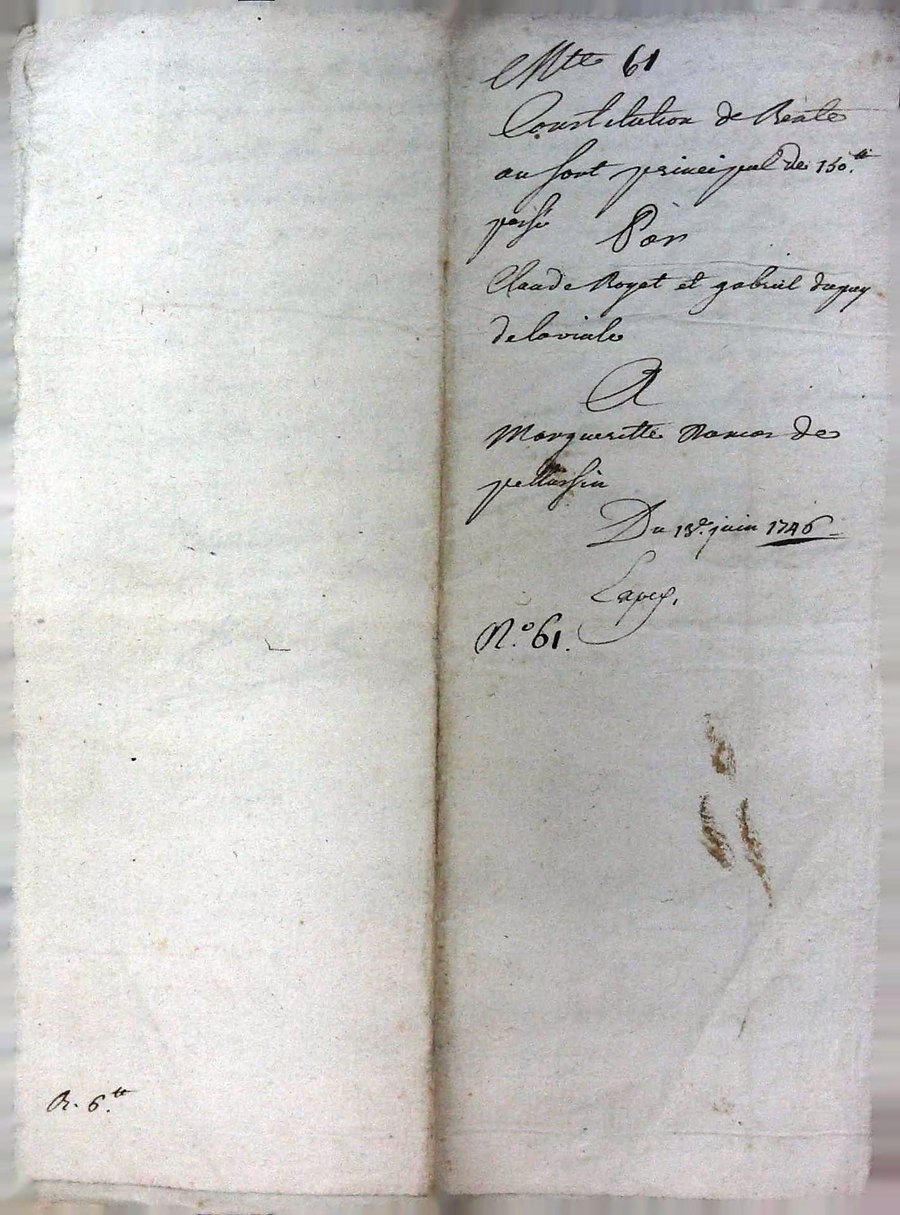 Mte 61
Constitution de Rente
au sort principal de 150.tt
passé Par
Claude Royet et gabriel dupuy
de laviale
A
Margueritte de
pellussin
Du 13e. juin 1746
No. 61.
R. 6.tt